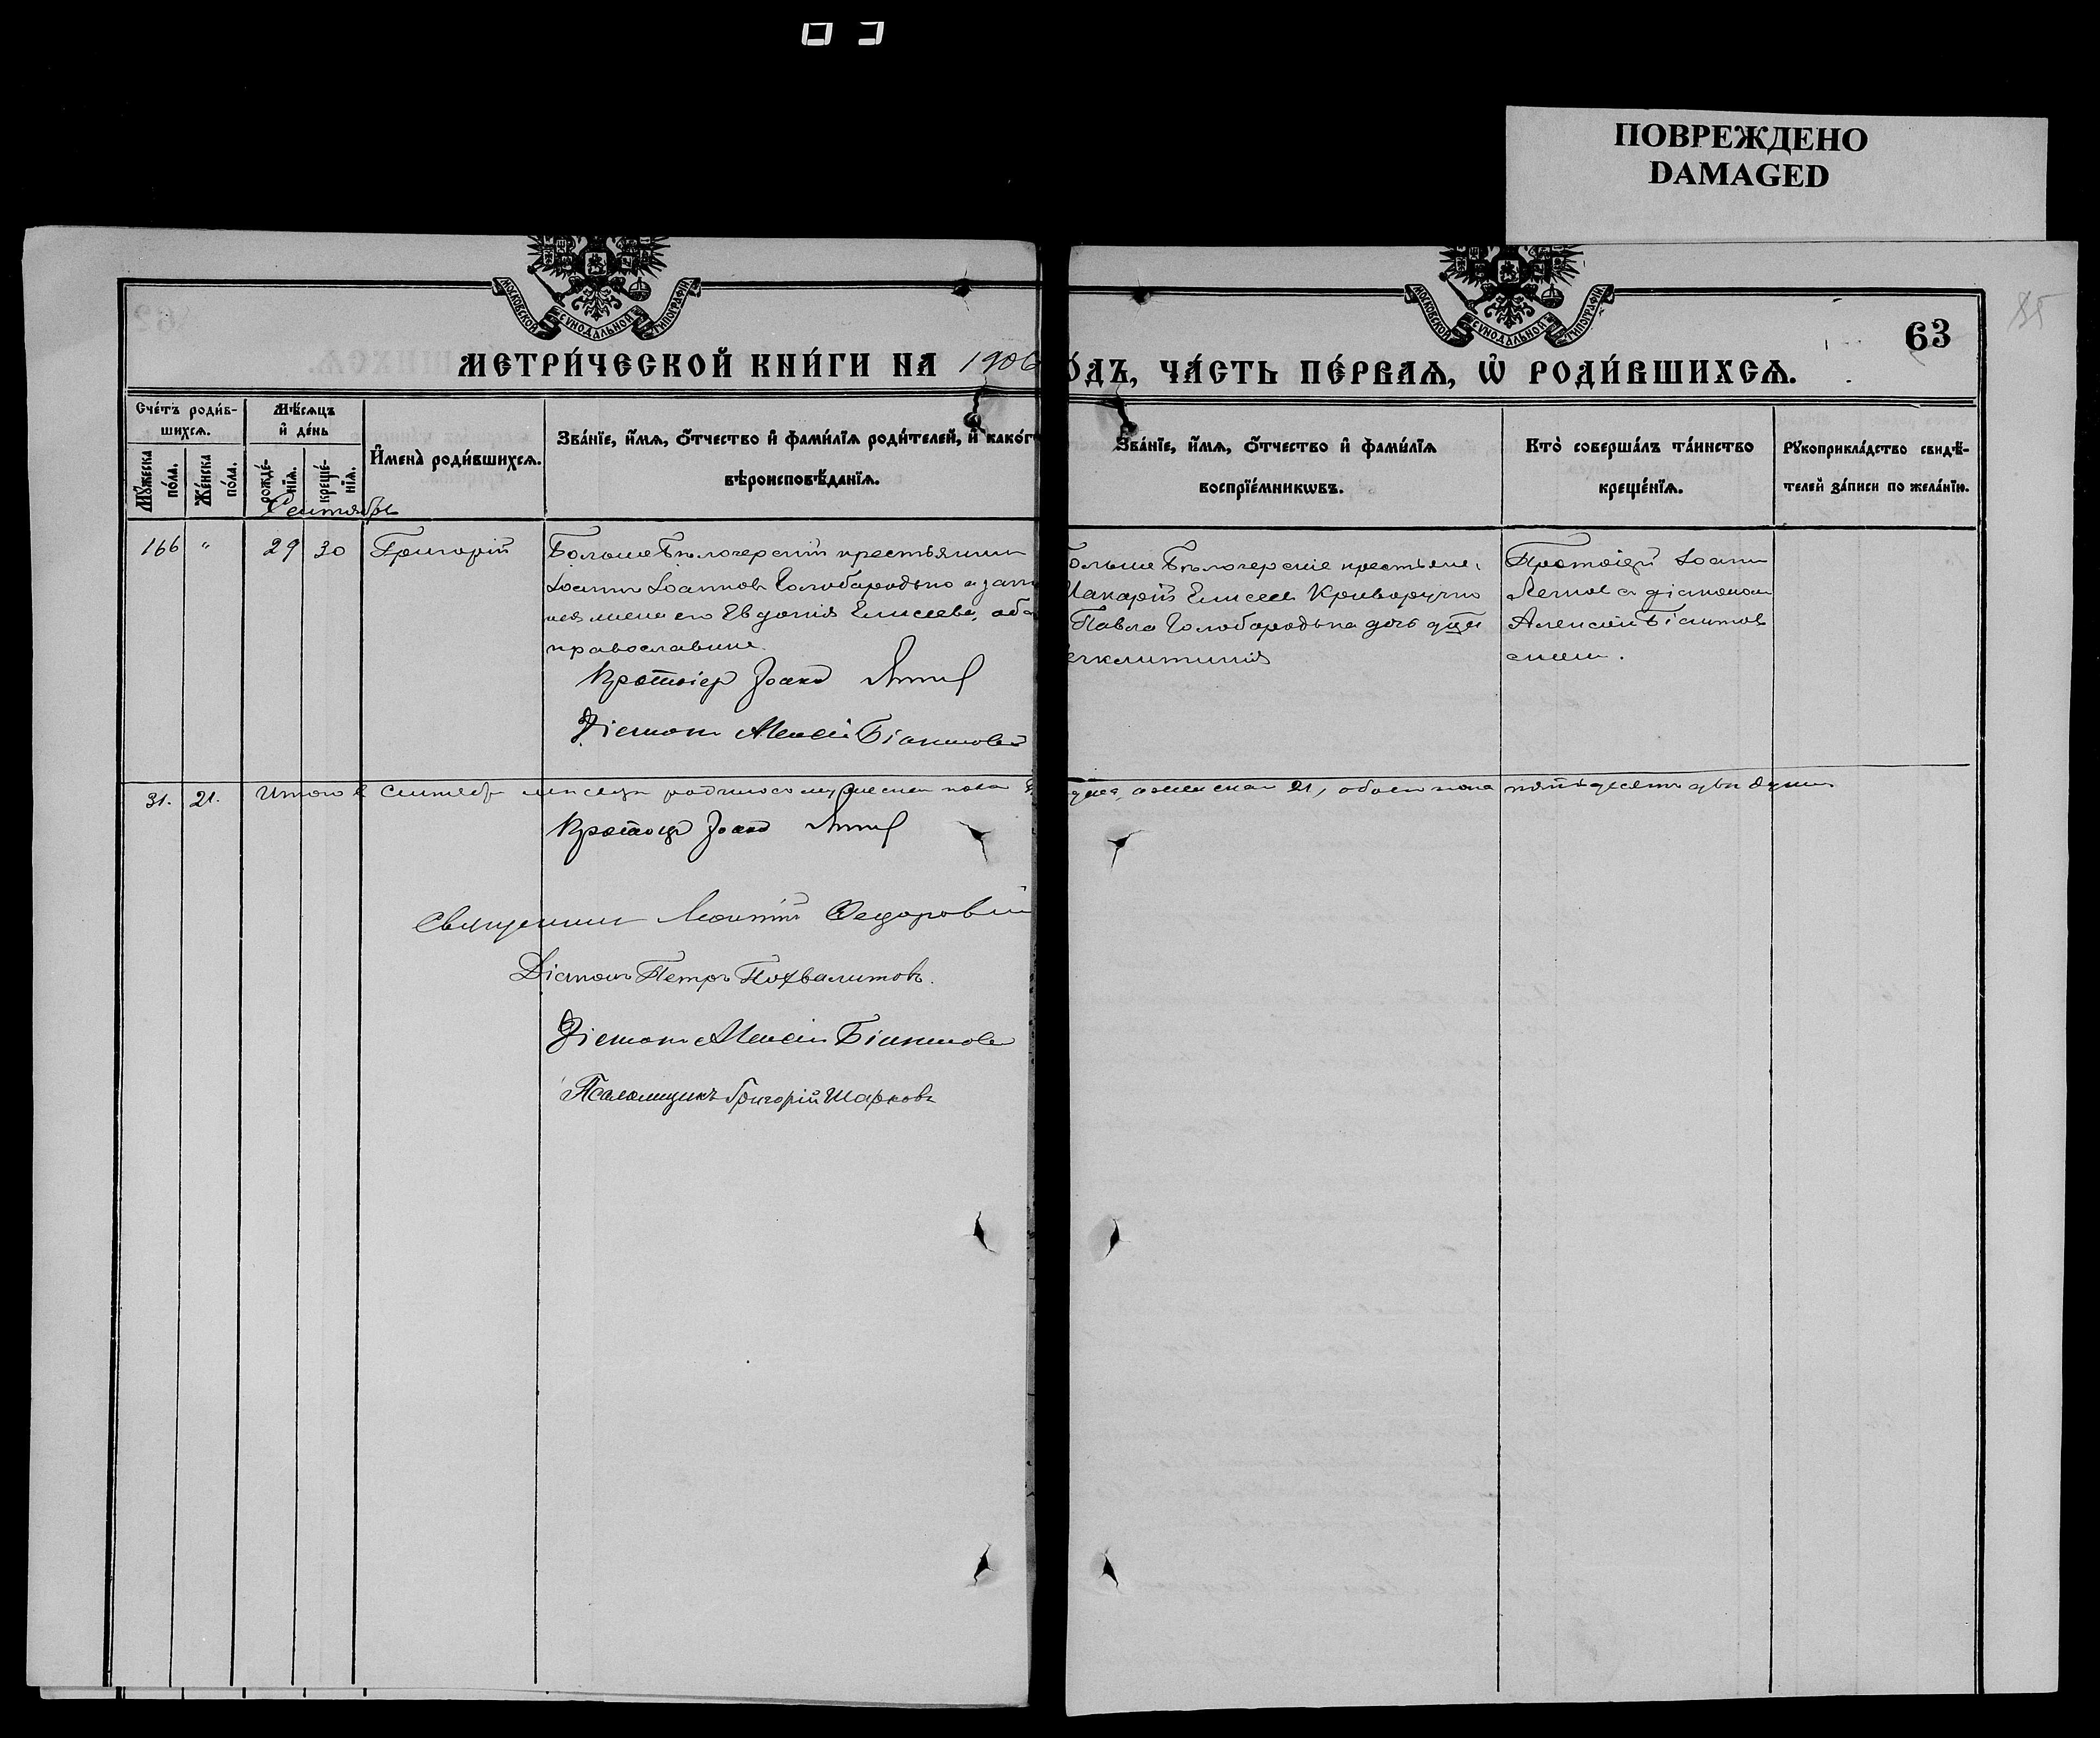 ПОВРЕЖДЕНО
DAMAGED
МОСКОВСКОЙ СѴНОДАЛЬНОЙ ТИПОГРАФІИ
МОСКОВСКОЙ СѴНОДАЛЬНОЙ ТИПОГРАФІИ
85
63
МЕТРИ́ЧЕСКОЙ КНИ́ГИ НА 1906
О́ДЪ, ЧА́СТЬ ПЕ́РВАѦ, Ѡ҆ РОДИ́ВШИХСѦ.
Сче́тъ роди́в-
шихсѧ.
Мꙋ́жеска по́ла.
Же́нска по́ла.
Мѣ́сѧцъ
и҆ де́нь
рожде́-
нїѧ.
креще́-
нїѧ.
И҆мена̀ роди́вшихсѧ.
Зва́нїе, и҆́мѧ, ѻ҆́тчество и҆ фами́лїѧ роди́телей, и҆ како́г
вѣроисповѣ́данїѧ.
Зва́нїе, и҆́мѧ, ѻ҆́тчество и҆ фами́лїѧ
воспрїе́мникѡвъ.
Кто̀ соверша́лъ та́инство
креще́нїѧ.
Рꙋкоприкла́дство свидѣ́-
телей за́писи по жела́нїю.
Сентябрь
166 " 29 30 Григорій
Больше Бѣлозерскій крестьянинъ
Іоаннъ Іоанновъ Голобародько и закон
ная жена его Евдокія Елисеева, оба
православные.
Протоіер Іоанн
Діаконъ Алексій Біантовскій
Больше Бѣлозерскіе крестьяне,
Макарій Елисеев Криворучко
Павла Голобародька дочь дѣвица
Протоіерей Іоанн
с діаконом
Алексіем Біантов
ским.
31. 21. Итого в Сентябрѣ мѣсяцѣ родилось мужеска пола
а женска 21, обоего пола пятьдесятъ двѣ души
Протоіер Іоанн
Священник Леонтій Федоровскій
Діаконъ Петръ Похвалитовъ.
Діаконъ Алексій Біантовск
Псаломщикъ Григорій Шарковъ